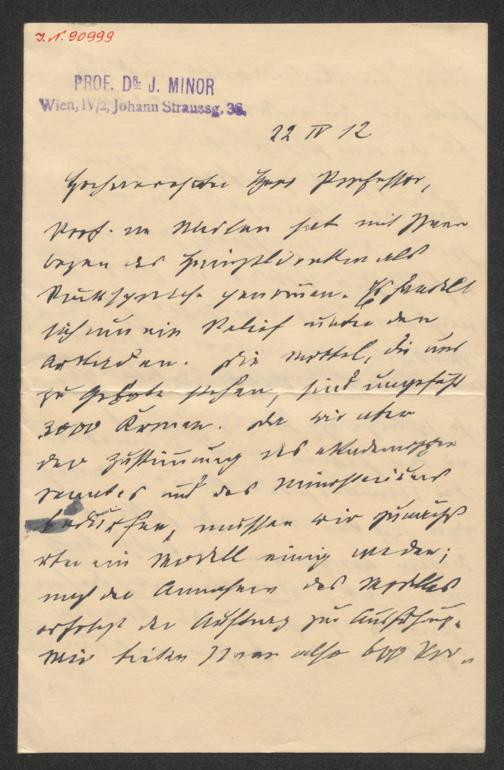 J. N. 90999
PROF. DR. J. MINOR
Wien, IV/2, Johann Straussg. 36.
22 IV 12
Hochverehrter Herr Professor,
Prof. hat mit Ihnen
wegen des als
Rücksprache genommen. Es handelt
sich um ein Relief unter den
Arkaden. Die Mittel, die uns
zu Gebote stehen, sind ungefähr
3000 Kronen. Da wir aber
der Zustimmung des akademischen
Senates und des Ministeriums
bedürfen, müssen wir zunächst
über ein Modell einig werden;
nach der Annahme des Modelles
erfolgt der Auftrag zur Ausführung.
Wir bieten Ihnen also 600